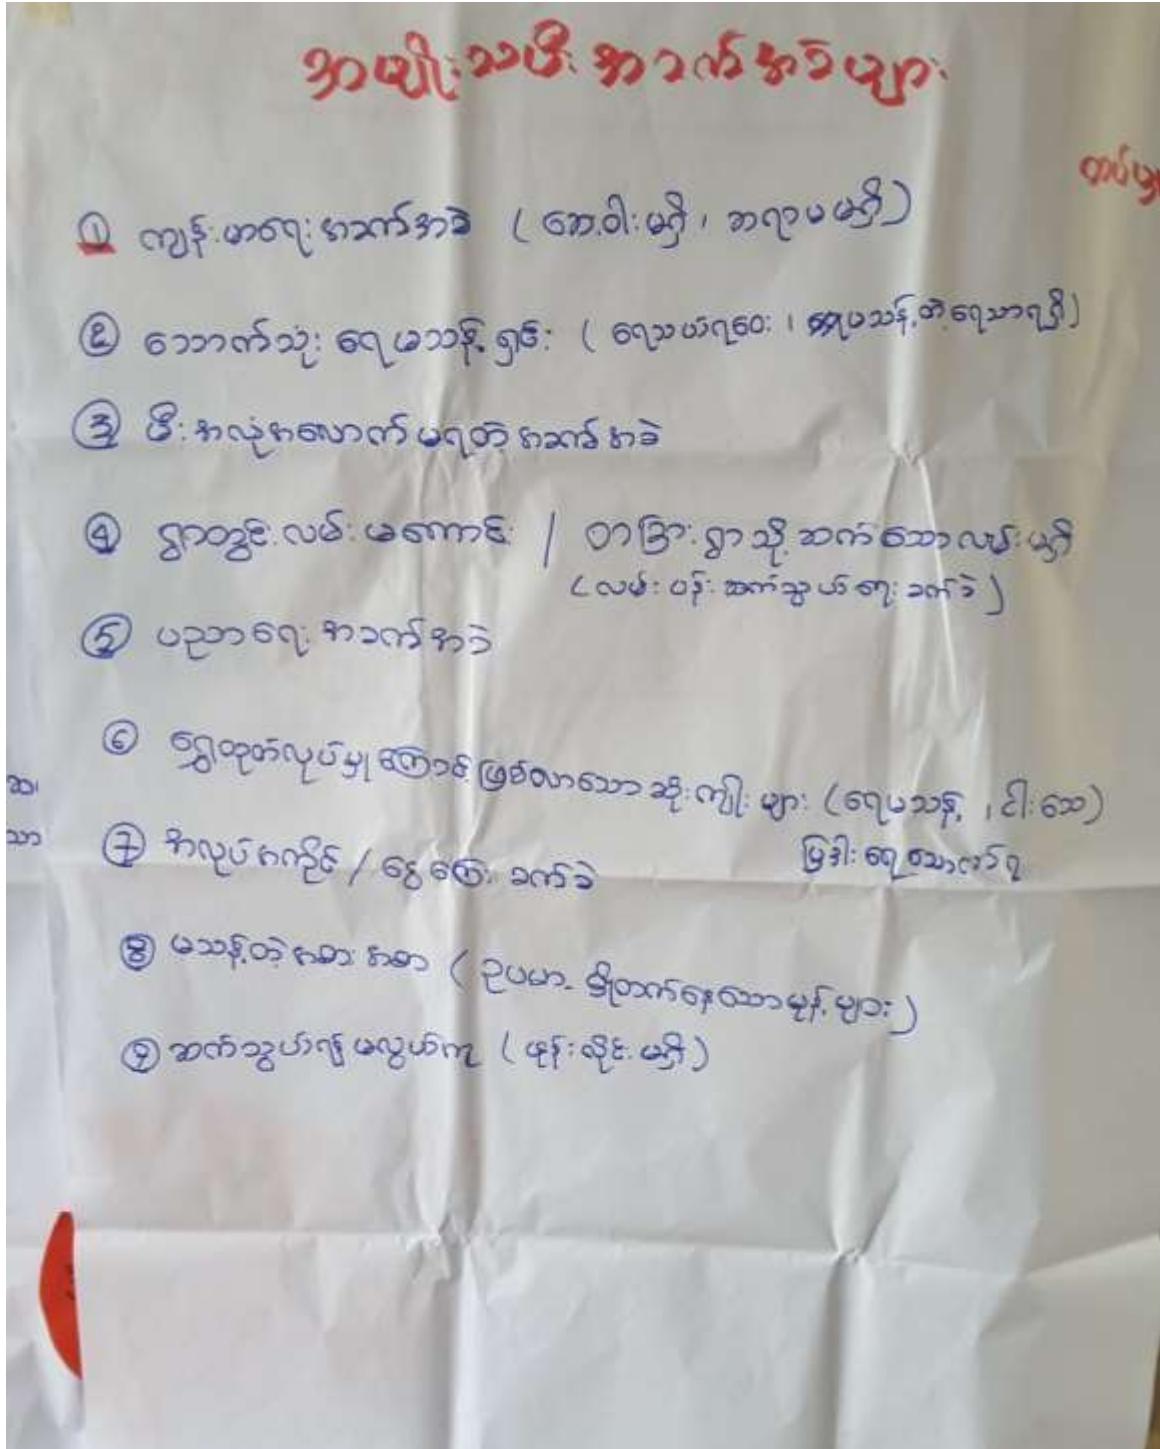 အမျိုးသမီး အခက်အခဲများ
① ကျန်းမာရေး အခက်အခဲ ( ဆေးဝါးမရှိ ၊ ဆရာမ မရှိ )
② သောက်သုံး ရေမသန့်ရှင်း ( ရေသယ်ရဝေး ၊ ရေမသန့်တဲ့ရေသာရရှိ )
③ မီး အလုံအလောက် မရတဲ့ အခက်အခဲ
④ ရွာတွင်း လမ်း မကောင်း / တခြား ရွာသို့ ဆက်သောလမ်း မရှိ
( လမ်း ပန်း ဆက်သွယ်ရေး ခက်ခဲ )
⑤ ပညာရေး အခက်အခဲ
⑥ ရွှေတူတ်လုပ်မှု ကြောင့် ဖြစ်လာသော ဆိုးကျိုး များ ( ရေမသန့် ၊ ငါးသေ )
⑦ အလုပ်အကိုင် / ငွေကြေး ခက်ခဲ
⑧ မသန့်တဲ့ အစားအစာ ( ဥပမာ- မှိုတက်နေသောမုန့်များ )
⑨ ဆက်သွယ်ရန် မလွယ်ကူ ( ဖုန်းလိုင်း မရှိ )